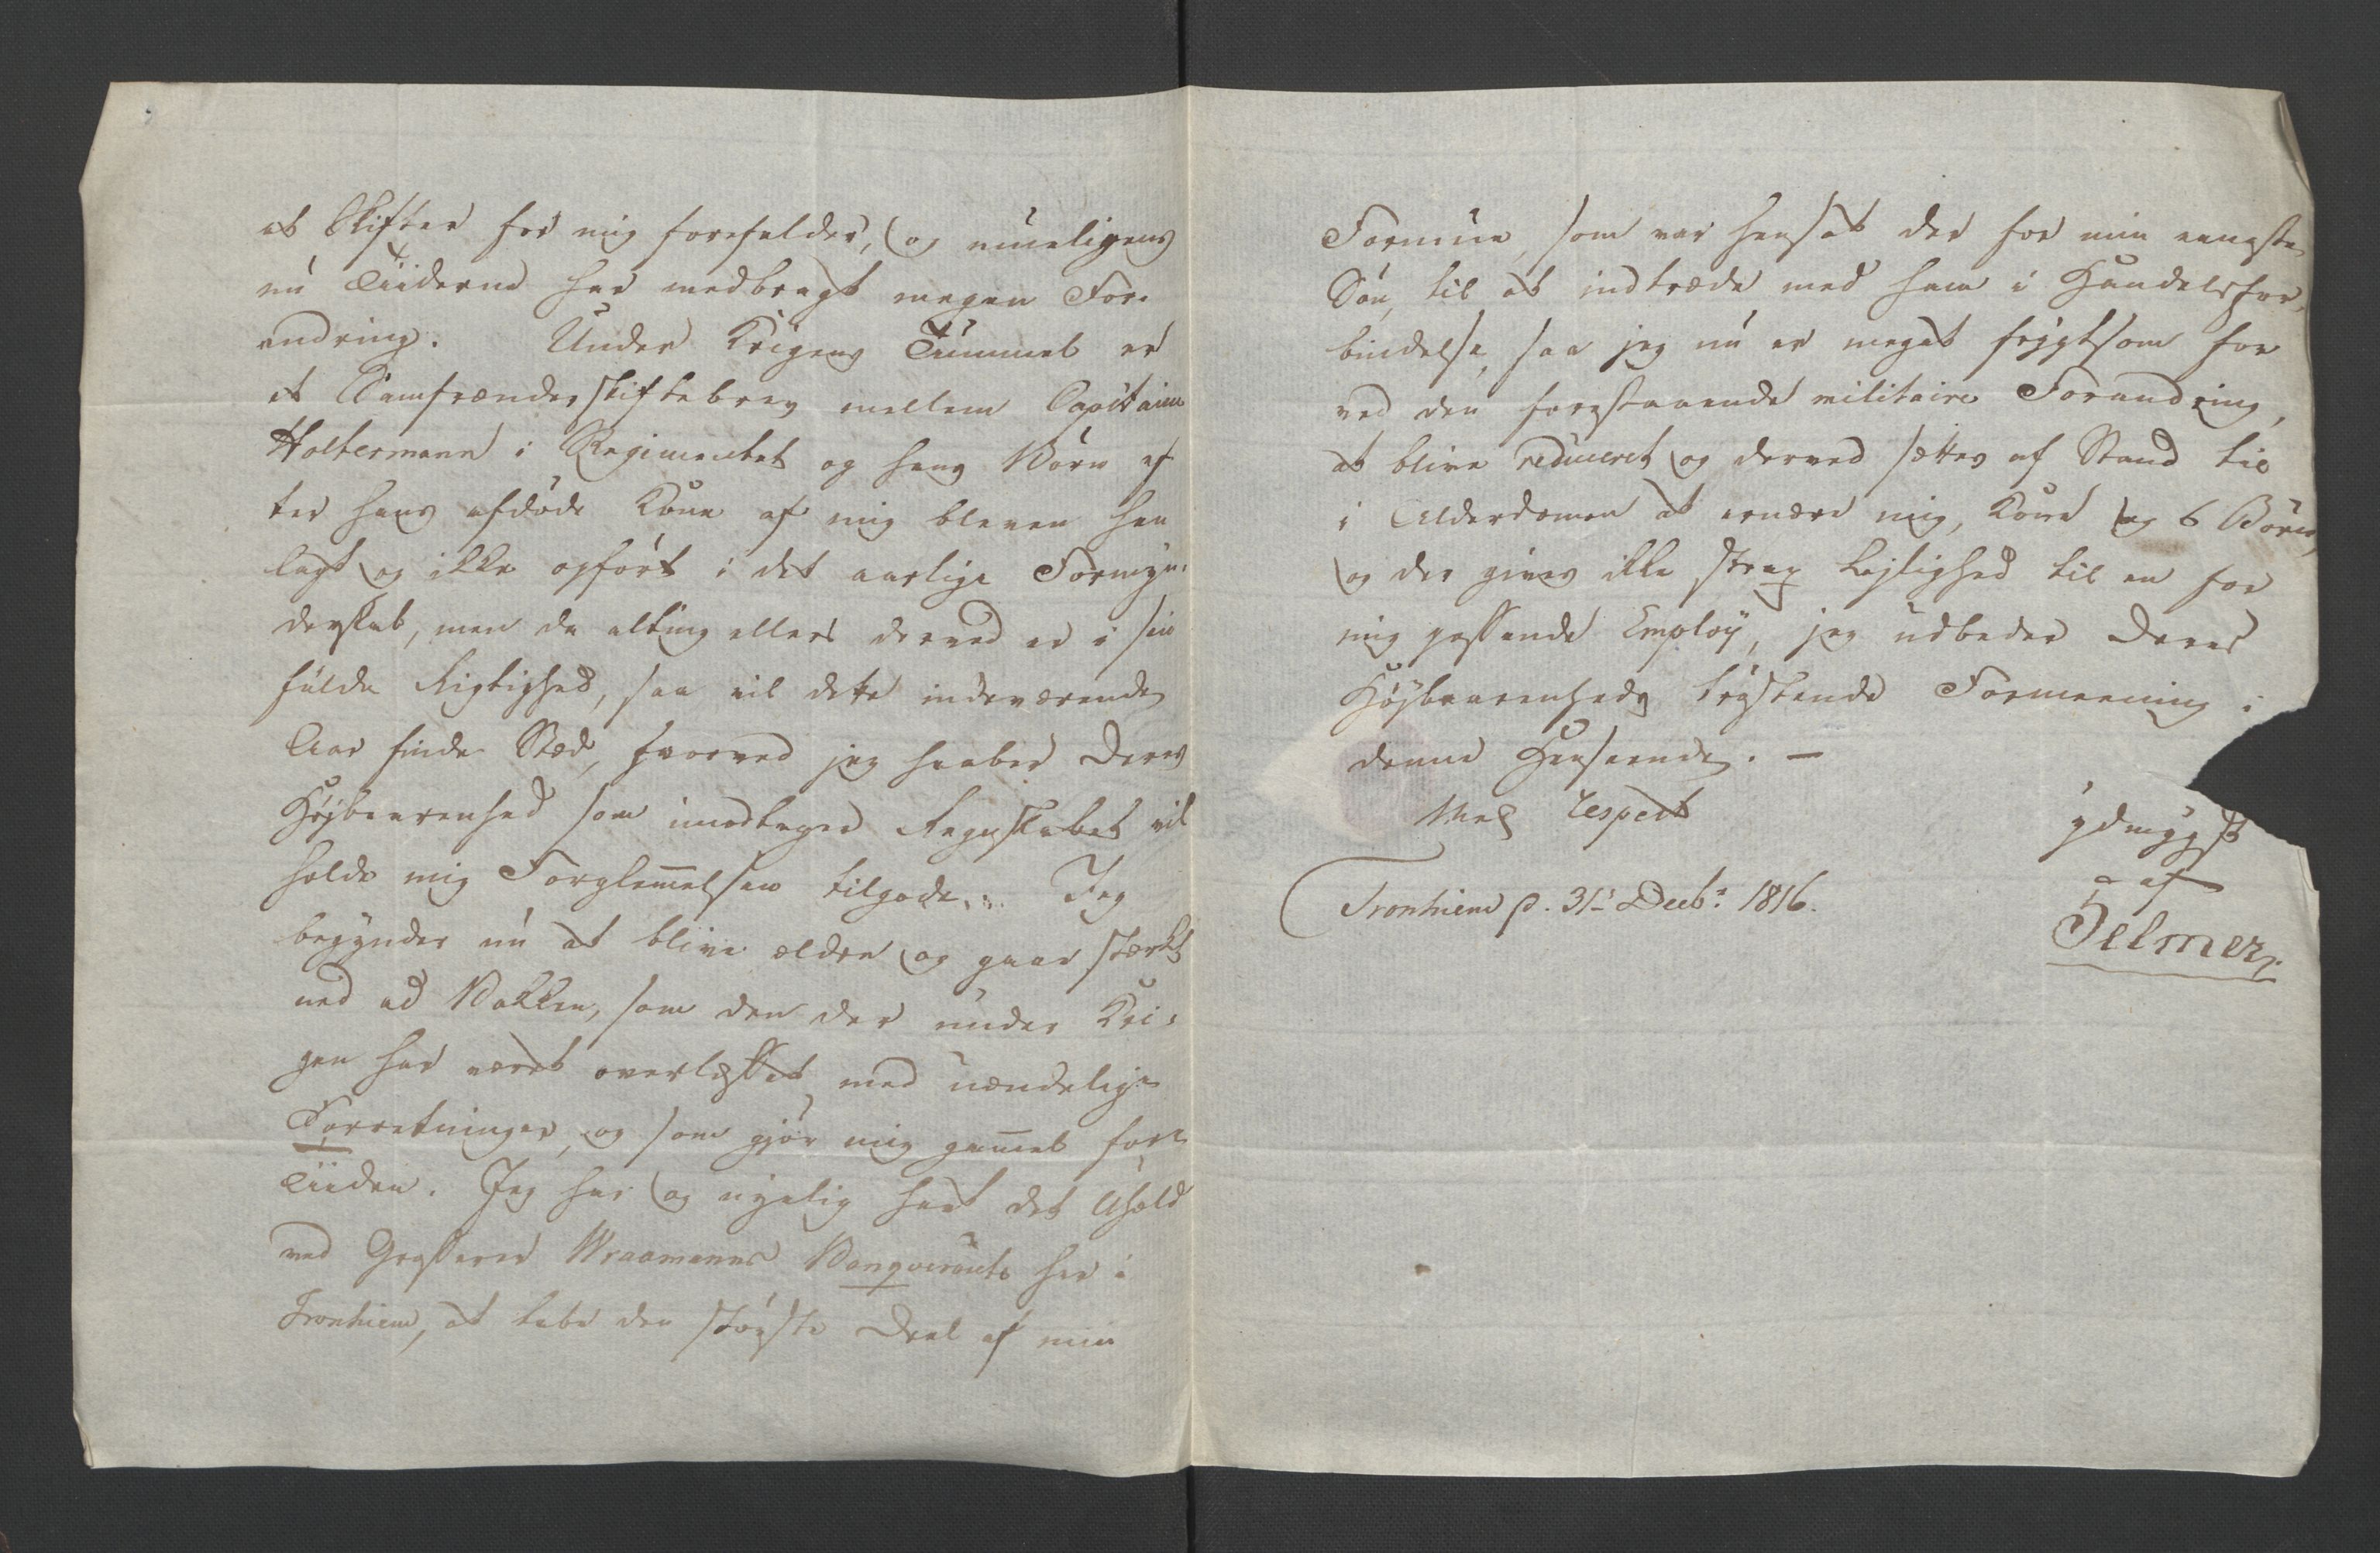 at Skifter for mig forefalder, og mueligens
nu Tiiderne har medbragt megen For-
andring. Under Krigens Tummel er
et Samfrænderskiftebrev mellem Capitaine
Holtermann i Regimentet og hans Börn ef
ter hans afdöde Kone af mig bleven hen
lagt og ikke opfört i det aarlige Formyn-
derskab, men da alting ellers derved er i sin
fulde Rigtighed, saa vil dette indeværende
Aar finde Stæd, hvorved jeg haaber Deres
Höjbaarenhed som imodtager Regnskabet vil
holde mig Forglem̅elsen tilgode. Jeg
begynder nu at blive ældre og gaar stærkt
ned ad Bakken, som den der under Kri-
gen har været overlæsset med uendelige
Forretninger, og som gjör mig gam̅el före
Tiiden. Jeg har og nyelig havt det Uheld
ved Grosserer Wraamanns Banqverout her i
Tronhiem, at tabe den störste Deel af min
Formue, som var hensat der for min eeneste
Sön, til at indtræde med ham i Handelsfor-
bindelse, saa jeg nu er meget frygtsom for
ved den forestaaende militaire Forandring,
at blive reduceret og derved sættes af Stand til
i Alderdomen at ernære mig, Kone og 6 Börn,
og der gives ikke strax Lejlighed til en for
mig passende Employ, jeg udbeder Deres
Höjbaarenheds tröstende Formeening i
denne Henseende. —
Med Respect
ydmygst
af
Tronhiem d. 31te Decbr: 1816.
Jelmer.